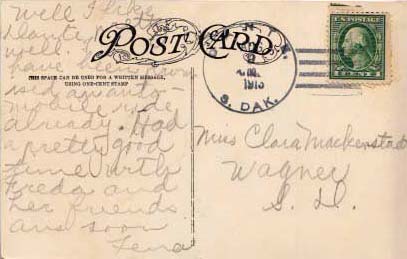 Well I like
Dante,
well.
have
already. Had
a pretty good
time with
Freda and
her friends
ans soon
Lena
POST CARD.
THIS SPACE CAN BE USED FOR A WRITTEN MESSAGE,
USING ONE-CENT STAMP
1913
S. DAK.
Miss Clara Mackenstad
Wagner
S. D.